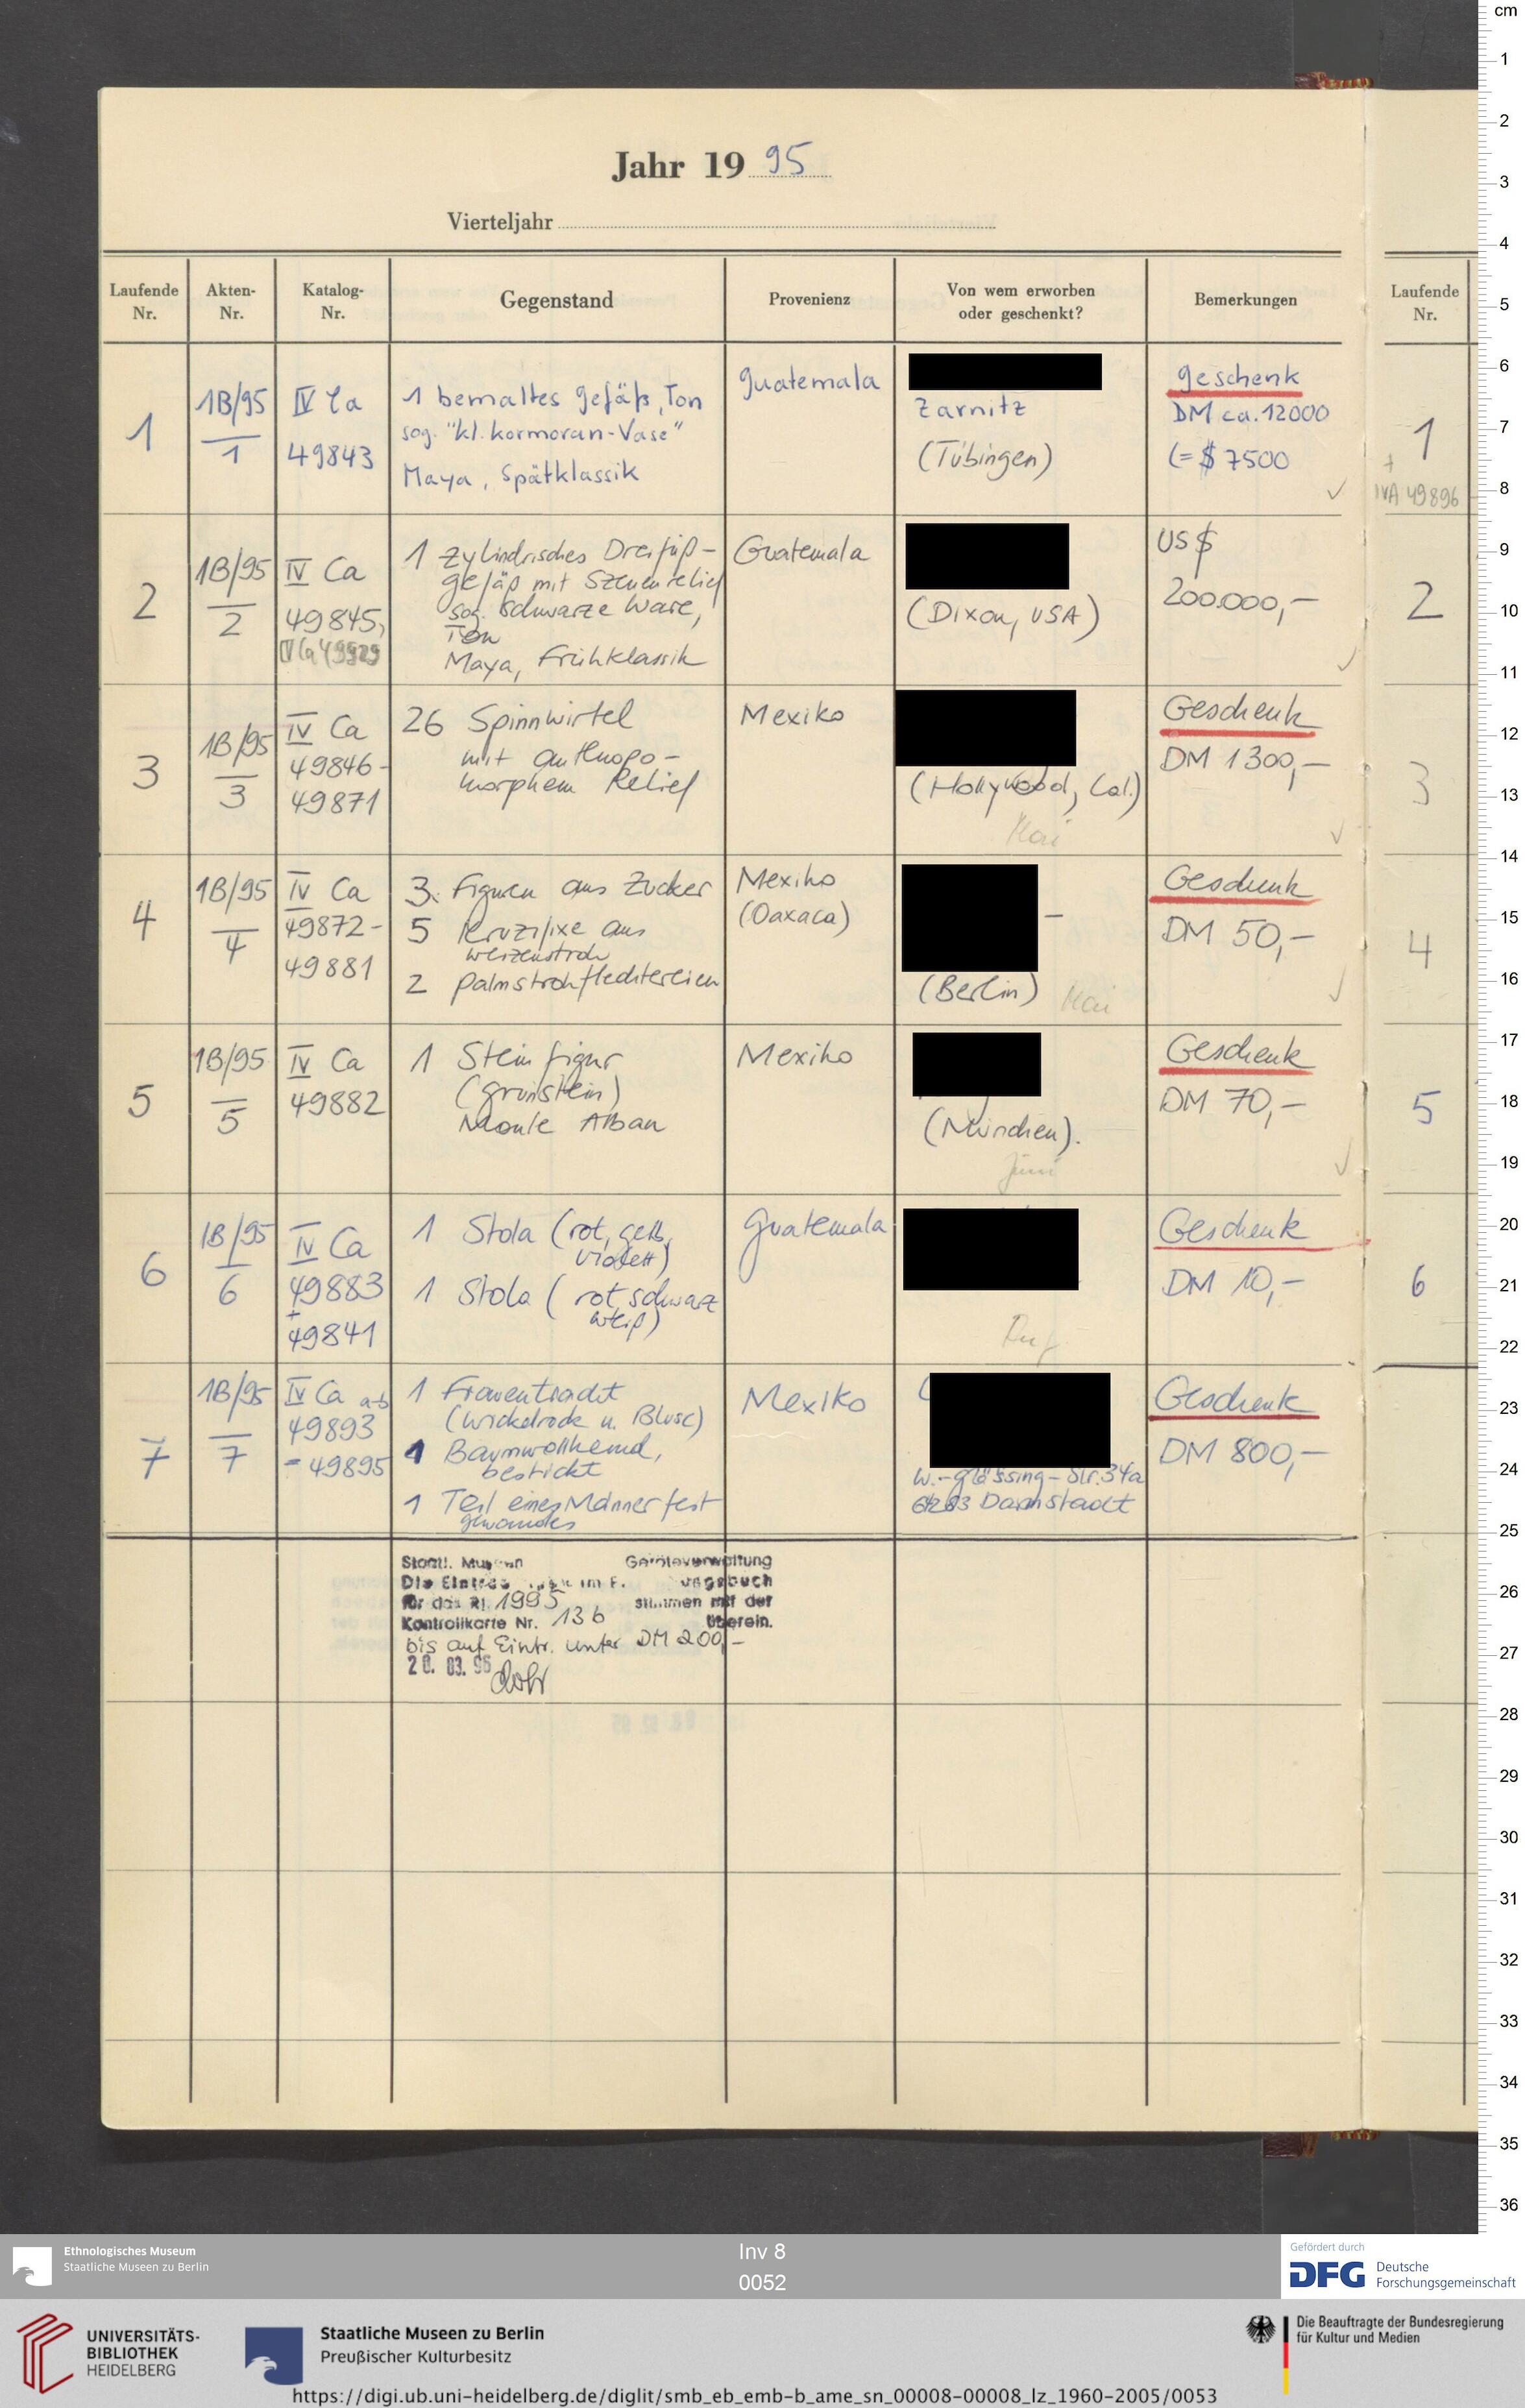 Jahr 19 95
Vierteljahr
Laufende Nr.
Akten-Nr.
Katalog-Nr.
Gegenstand
Provenienz
Von wem erworben oder geschenkt?
Bemerkungen
Laufende Nr.
1
1B/95
1
IV Ca
49843
1 bemaltes Gefäß, Ton
sog. "kl. Kormoran-Vase"
Maya, Spätklassik
Guatemala
Zarnitz
(Tübingen)
Geschenk
DM ca. 12000
(= $ 7500
1
+
IVA 49896
2
1B/95
2
IV Ca
49845,
1 zylindrisches Dreifuß-
gefäß mit Szenenrelief
sog. schwarze Ware,
Ton
Maya, Frühklassik
Guatemala
(Dixon, USA)
US $
200.000,-
2
3
1B/95
3
IV Ca
49846-
49871
26 Spinnwirtel
mit anthropo-
morphem Relief
Mexiko
(Hollywood, Cal.)
Mai
Geschenk
DM 1300,-
3
4
1B/95
4
IV Ca
49872-
49881
3 Figuren aus Zucker
5 Kruzifixe aus
Weizenstroh
2 Palmstrohflechtereien
Mexiko
(Oaxaca)
(Berlin)
Mai
Geschenk
DM 50,-
4
5
1B/95
5
IV Ca
49882
1 Steinfigur
(Grünstein)
Monte Alban
Mexiko
(München).
Juni
Geschenk
DM 70,-
5
6
1B/95
6
IV Ca
49883
+
49841
1 Stola (rot, gelb,
violett)
1 Stola (rot, schwarz
weiß)
Guatemala
Geschenk
DM 10,-
6
7
1B/95
7
IV Ca a-b
49893
- 49895
1 Frauentracht
(Wickelrock u. Bluse)
1 Baumwollhemd,
bestickt
1 Teil eines Männerfest
gewandes
Mexiko
W.-Glässing-Str. 34a
64283 Darmstadt
Geschenk
DM 800,-
Staatl. Museen Geräteverwaltung
für das Rj. 1995 stimmen mit der
Kontrollkarte Nr. 136 überein.
bis auf Eintr. unter DM 200,-
20. 03. 96
cm
1
2
3
4
5
6
7
8
9
10
11
12
13
14
15
16
17
18
19
20
21
22
23
24
25
26
27
28
29
30
31
32
33
34
35
36
Ethnologisches Museum
Staatliche Museen zu Berlin
Inv 8
0052
Gefördert durch
DFG Deutsche
Forschungsgemeinschaft
UNIVERSITÄTS-
BIBLIOTHEK
HEIDELBERG
Staatliche Museen zu Berlin
Preußischer Kulturbesitz
Die Beauftragte der Bundesregierung
für Kultur und Medien
https://digi.ub.uni-heidelberg.de/diglit/smb_eb_emb-b_ame_sn_00008-00008_lz_1960-2005/0053